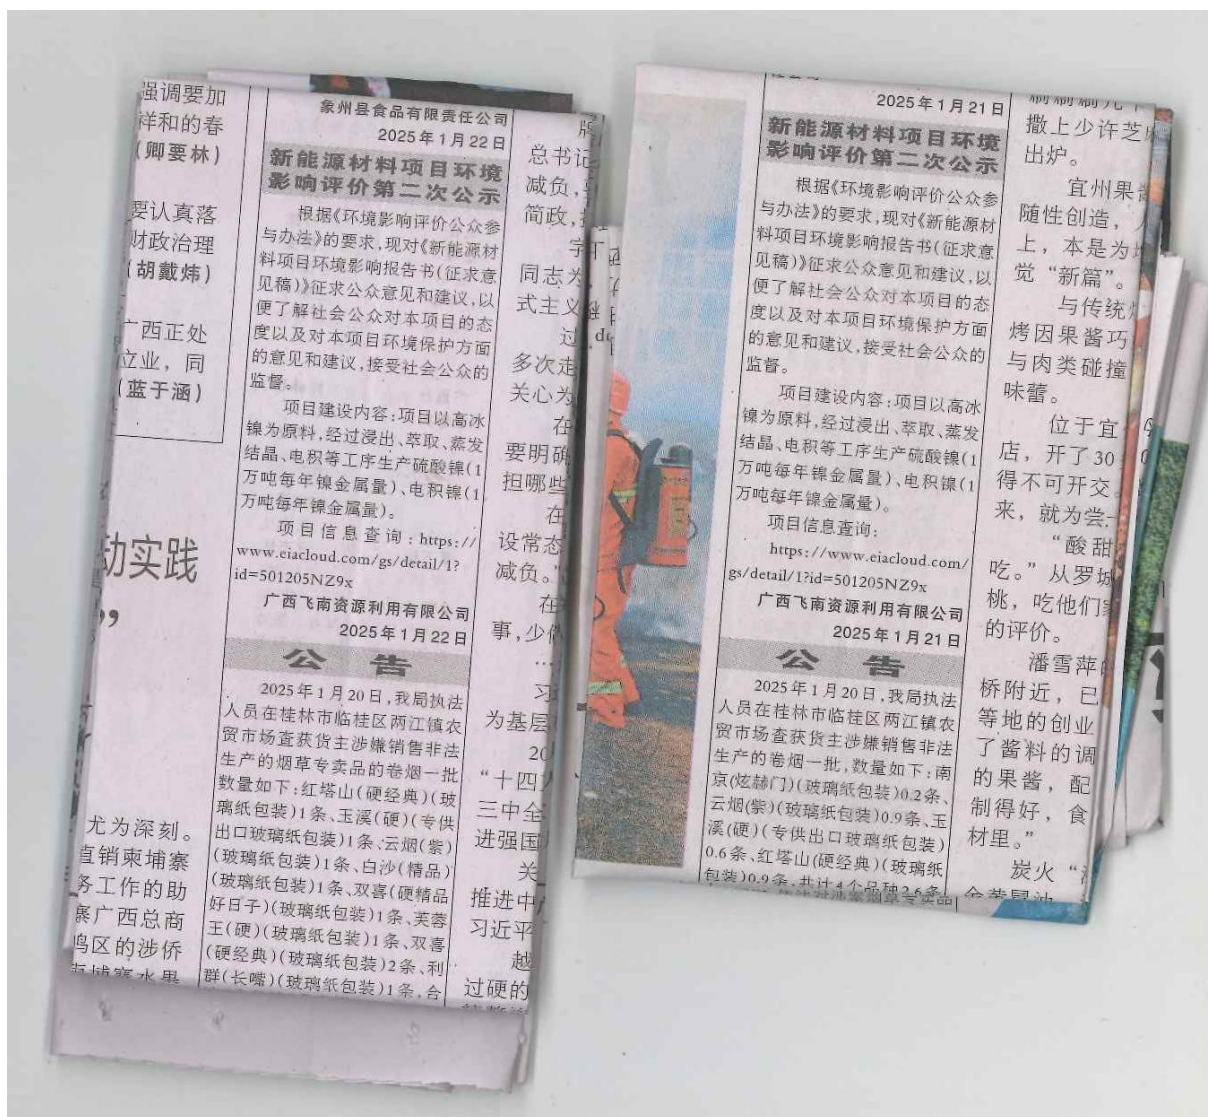 强调要加
祥和的春
(卿要林)
要认真落
财政治理
(胡戴炜)
广西正处
立业，同
(蓝于涵)
动实践
”
尤为深刻。
直销柬埔寨
务工作的助
寨广西总商
鸣区的涉侨
象州县食品有限责任公司
2025年1月22日
新能源材料项目环境
影响评价第二次公示
根据《环境影响评价公众参
与办法》的要求,现对《新能源材
料项目环境影响报告书(征求意
见稿)》征求公众意见和建议,以
便了解社会公众对本项目的态
度以及对本项目环境保护方面
的意见和建议,接受社会公众的
监督。
项目建设内容:项目以高冰
镍为原料,经过浸出、萃取、蒸发
结晶、电积等工序生产硫酸镍(1
万吨每年镍金属量)、电积镍(1
万吨每年镍金属量)。
项目信息查询:https://
www.eiacloud.com/gs/detail/1?
id=501205NZ9x
广西飞南资源利用有限公司
2025年1月22日
公告
2025年1月20日,我局执法
人员在桂林市临桂区两江镇农
贸市场查获货主涉嫌销售非法
生产的烟草专卖品的卷烟一批
数量如下:红塔山(硬经典)(玻
璃纸包装)1条、玉溪(硬)(专供
出口玻璃纸包装)1条、云烟(紫)
(玻璃纸包装)1条、白沙(精品)
(玻璃纸包装)1条、双喜(硬精品
好日子)(玻璃纸包装)1条、芙蓉
王(硬)(玻璃纸包装)1条、双喜
(硬经典)(玻璃纸包装)2条、利
群(长嘴)(玻璃纸包装)1条,合
总书记
减负,
简政,
字
同志为
式主义
过
多次走
关心为
在
要明确
担哪些
在
设常态
减负。”
在
事,少
…
习
为基层
20
“十四
三中全
进强国
关
推进中
习近平
越
过硬的
2025年1月21日
新能源材料项目环境
影响评价第二次公示
根据《环境影响评价公众参
与办法》的要求,现对《新能源材
料项目环境影响报告书(征求意
见稿)》征求公众意见和建议,以
便了解社会公众对本项目的态
度以及对本项目环境保护方面
的意见和建议,接受社会公众的
监督。
项目建设内容:项目以高冰
镍为原料,经过浸出、萃取、蒸发
结晶、电积等工序生产硫酸镍(1
万吨每年镍金属量)、电积镍(1
万吨每年镍金属量)。
项目信息查询:
https://www.eiacloud.com/
gs/detail/1?id=501205NZ9x
广西飞南资源利用有限公司
2025年1月21日
公告
2025年1月20日,我局执法
人员在桂林市临桂区两江镇农
贸市场查获货主涉嫌销售非法
生产的卷烟一批,数量如下:南
京(炫赫门)(玻璃纸包装)0.2条、
云烟(紫)(玻璃纸包装)0.9条、玉
溪(硬)(专供出口玻璃纸包装)
0.6条、红塔山(硬经典)(玻璃纸
包装)0.9条,共计4个品种2.6条
撒上少许芝麻
出炉。
宜州果酱
随性创造，
上，本是为
觉“新篇”。
与传统
烤因果酱巧
与肉类碰撞
味蕾。
位于宜
店，开了30
得不可开交。
来，就为尝
“酸甜
吃。”从罗城
桃，吃他们家
的评价。
潘雪萍
桥附近，已
等地的创业
了酱料的调
的果酱，配
制得好，食
材里。”
炭火